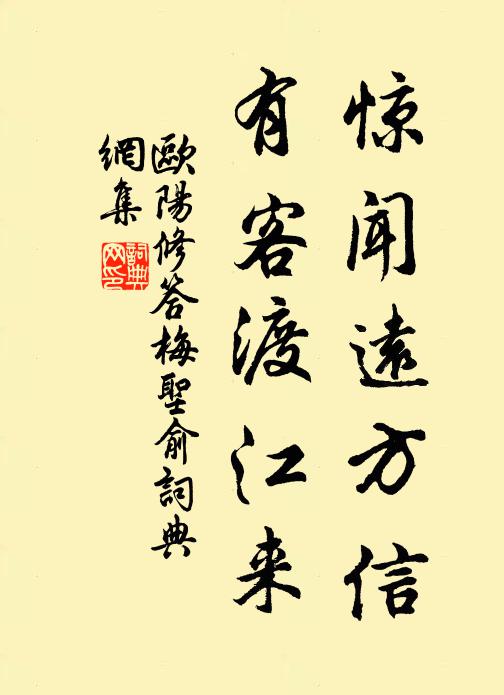 惊闻遠方信
有客渡江来
歐陽修答梅聖俞詞典
網集
詞典网印